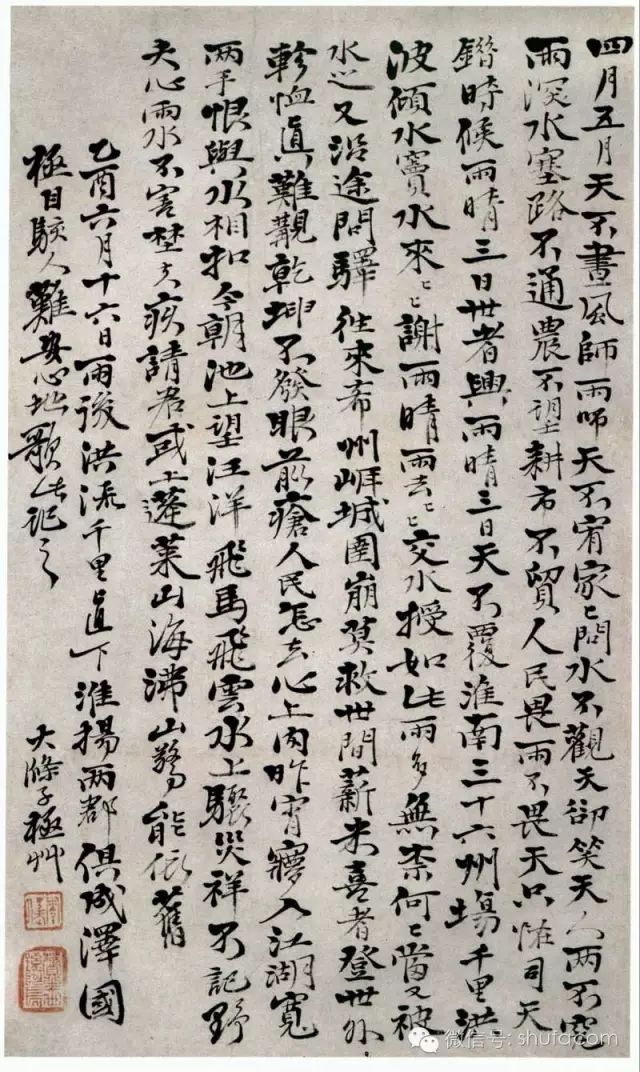 四月五月天不晝風師雨師天不宥家〻問水不觀天卻笑天人兩不寬
雨深水塞路不通農不望耕市不貿人民畏雨不畏天只怪司天
錯時候雨晴三日世者興雨晴三日天不覆淮南三十六州場千里洪
波傾水竇水來〻謝雨晴雨去〻交水授如此雨多無柰何〻當又被
水亦又沿途問驛往來希州崐城圍崩莫救世間薪米喜者登世外
軫恤真難覯乾坤不發眼前瘡人民怎去心上肉昨宵寢入江湖寬
兩手恨與水相扣今朝池上望汪洋飛馬飛雲水上驟災祥不記野
夫心雨水不害埜夫疚請君或上蓬萊山海沸山勞能依舊
乙酉六月十六日雨後洪流千里直下淮揚兩郡俱成澤國
極目駭人難安心地歌此記之 大滌子極艸
微信号: shufacom